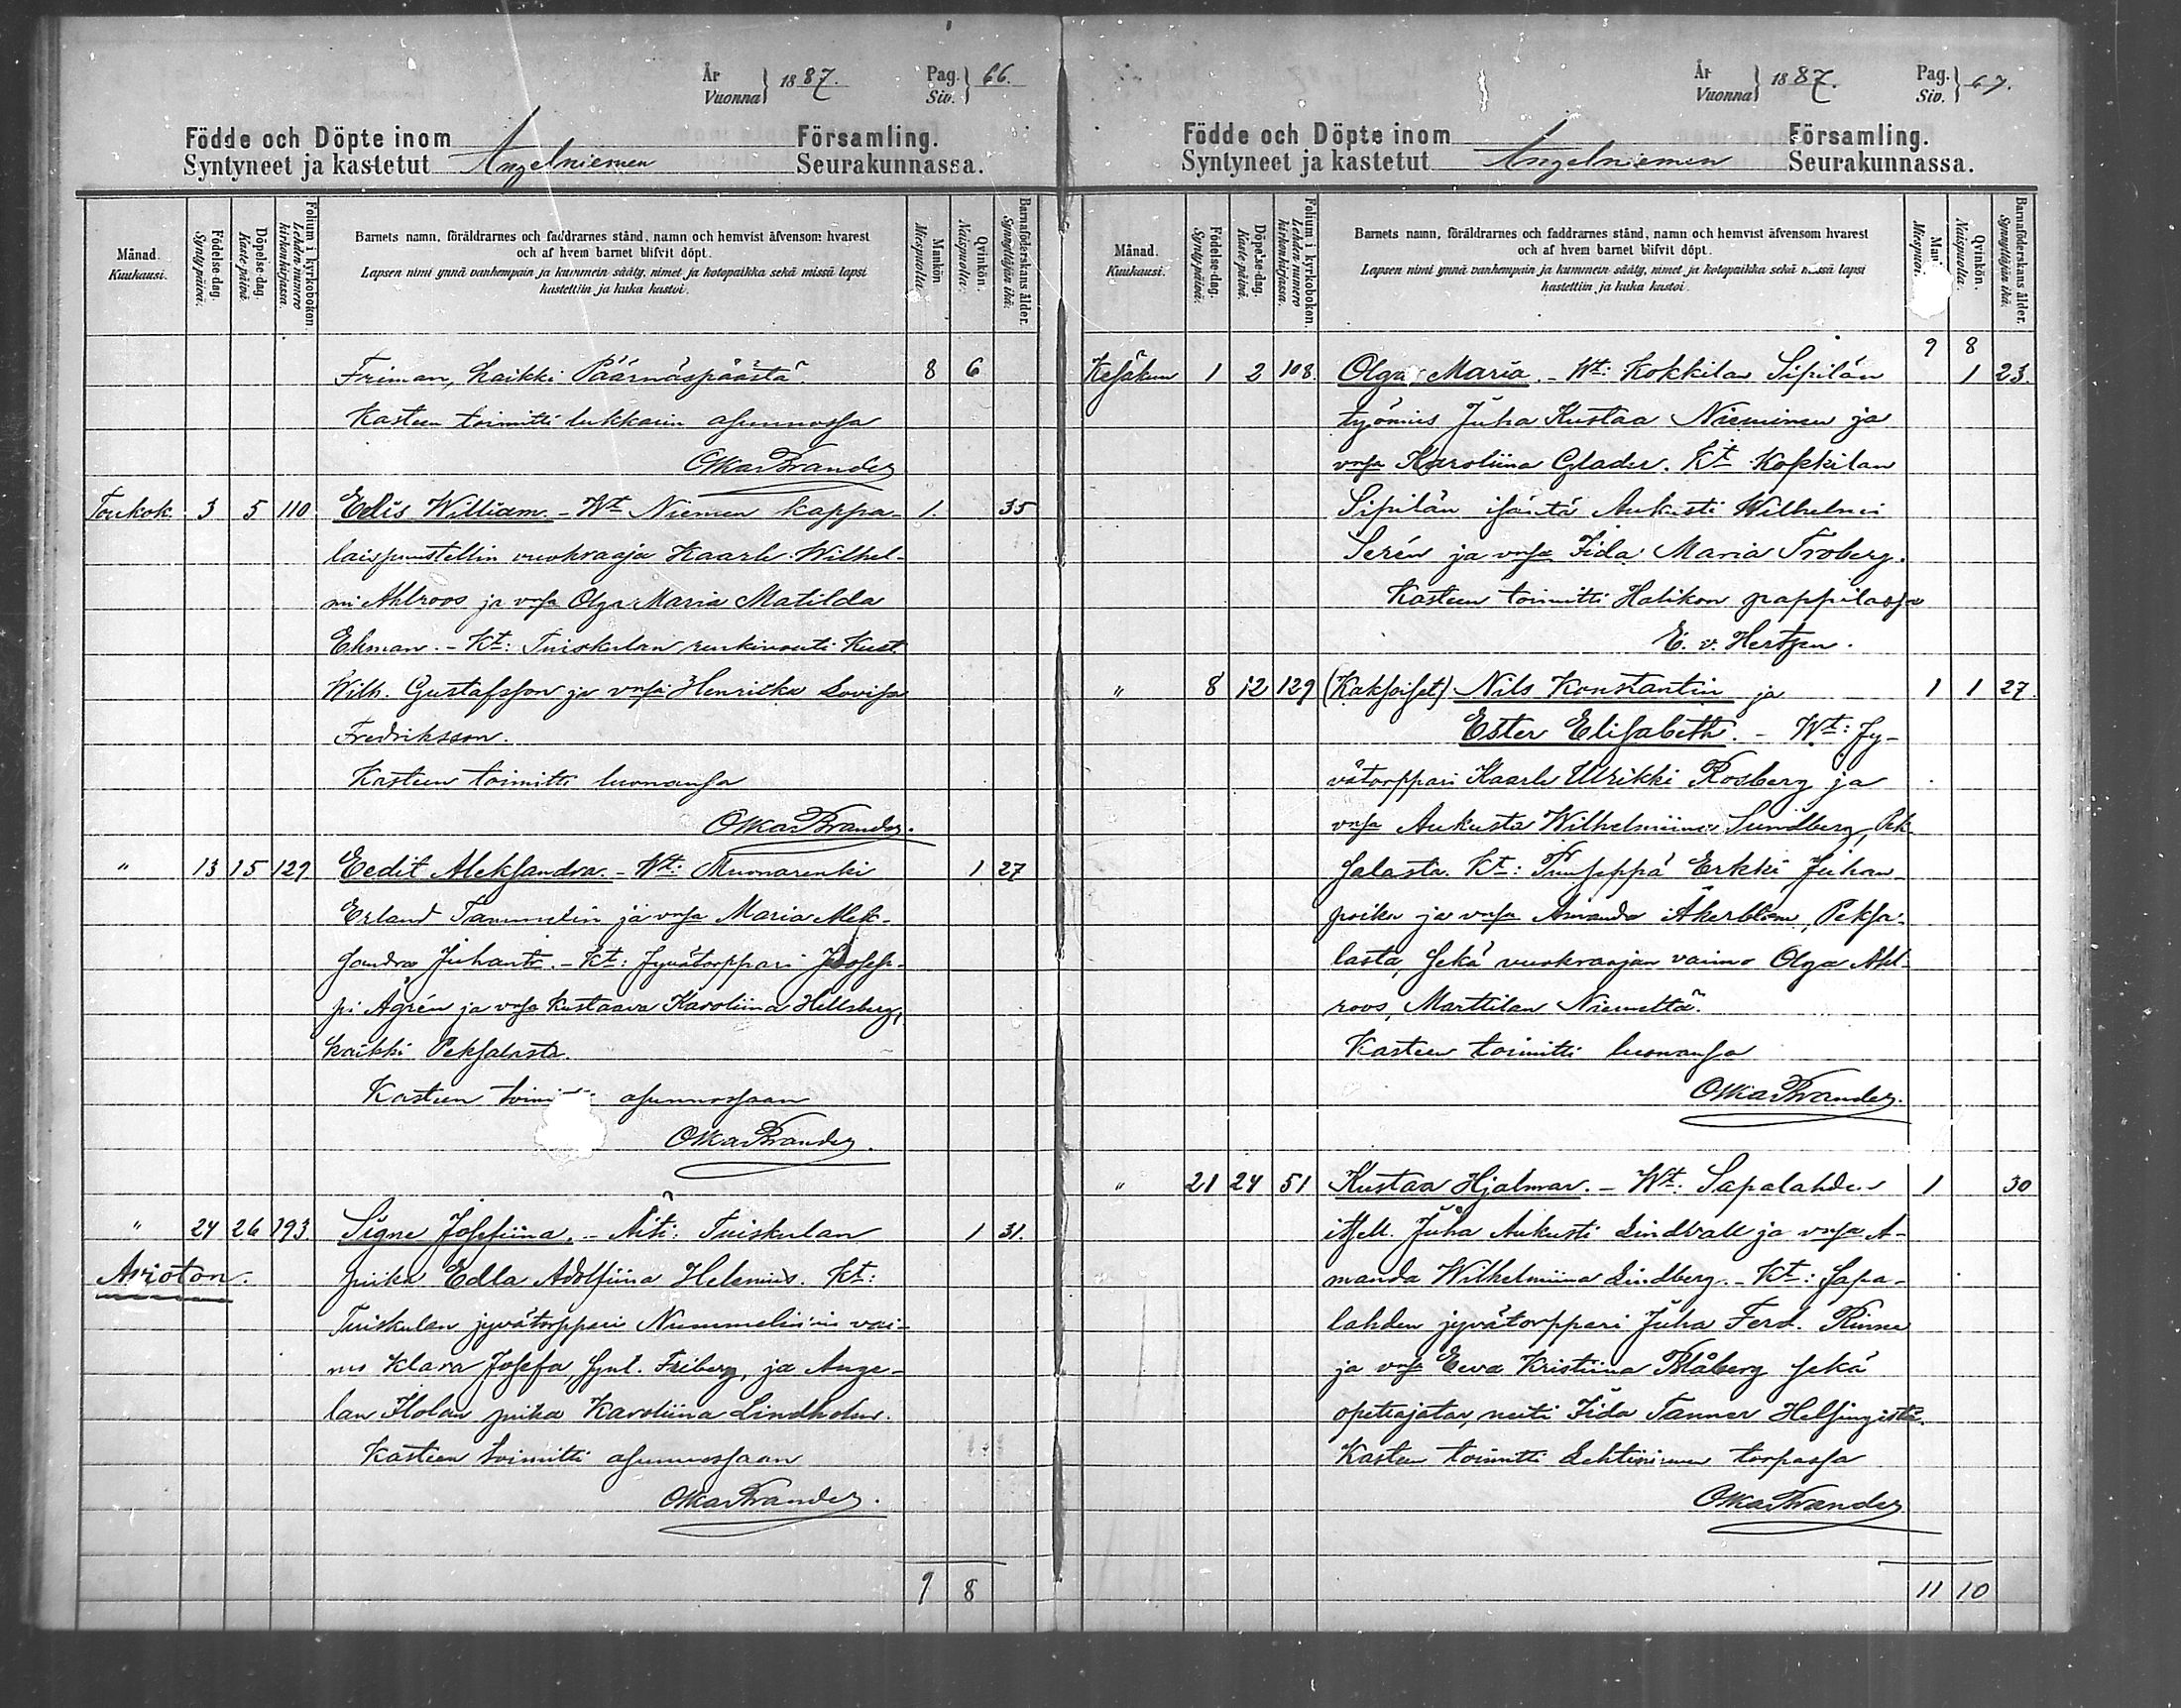 År
Vuonna } 1887. Pag.
Siv. } 66.
Födde och Döpte inom Församling.
Syntyneet ja kastetut Angelniemen Seurakunnassa.
Månad.
Kuukausi.
Födelse-dag.
Syntypäivä.
Döpelse-dag.
Kaste-päivä.
Folium i kyrkoboken.
Lehden numero kirkonkirjassa.
Barnets namn, föräldrarnes och faddrarnes stånd, namn och hemvist äfvensom hvarest
och af hvem barnet blifvit döpt.
Lapsen nimi ynnä vanhempain ja kummein sääty, nimet ja kotopaikka sekä missä lapsi
kastettiin ja kuka kastoi.
Mankön
Miespuolia.
Qvinkön.
Naispuolia.
Barnaföderskans ålder.
Synnyttäjän ikä.
Friman, kaikki Päärnäspäästä. 8 6
Kasteen toimitti lukkarin asunnossa
Oskar Brander
Toukok. 3 5 110 Eelis William. - Wt Niemen kappa- 1. 35
laispuustellin vuokraaja Kaarle Wilhel-
mi Ahlroos ja vmsa Olga Maria Matilda
Ekman. - Kt: Tuiskulan renkivouti Kust.
Wilh. Gustafsson ja vmsa Henrika Lovisa
Fredriksson.
Kasteen toimitti luonansa
Oskar Brander.
" 13 15 129 Eedit Aleksandra. - Wt: Muonarenki 1 27
Erland Tammelin ja vmsa Maria Alek-
sandra Juhantr. - Kt: Jyvätorppari Joosep-
pi Ågrén ja vmsa Kustaava Karoliina Hellsberg,
kaikki Peksalasta.
Kasteen asunnossaan
Oskar Brander.
" 24 26 193 Signe Josefiina. - Äiti: Tuiskulan 1 31.
Avioton. piika Edla Adolfiina Helenius. Kt:
Tuiskulan jyvätorppari Nummelin'in vai-
mo Klara Josefa, synt. Friberg, ja Ange-
lan Ilolan piika Karoliina Lindholm.
Kasteen toimitti asunnossaan
Oskar Brander.
9 8
År
Vuonna } 1887. Pag.
Siv. } 67.
Födde och Döpte inom Församling.
Syntyneet ja kastetut Angelniemen Seurakunnassa.
Månad.
Kuukausi.
Födelse-dag.
Syntypäivä.
Döpelse-dag.
Kaste-päivä.
Folium i kyrkoboken.
Lehden numero kirkonkirjassa.
Barnets namn, föräldrarnes och faddrarnes stånd, namn och hemvist äfvensom hvarest
och af hvem barnet blifvit döpt.
Lapsen nimi ynnä vanhempain ja kummein sääty, nimet ja kotopaikka sekä missä lapsi
kastettiin ja kuka kastoi.
Qvinkön.
Naispuolia.
Barnaföderskans ålder.
Synnyttäjän ikä.
9 8
Kesäkuu 1 2 108. Olga Maria. - Wt: Kokkilan Sipilän 1 23.
työmies Juha Kustaa Nieminen ja
vmsa Karoliina Glader. Kt Kokkilan
Sipilän isäntä Aukusti Wilhelmi
Serén ja vmsa Iida Maria Troberg.
Kasteen toimitti Halikon pappilassa
E. v. Hertzen.
" 8 12 129 (Kaksoiset) Nils Konstantin ja 1 1 27.
Ester Elisabeth. - Wt: Jy-
vätorppari Kaarle Ulrikki Rosberg ja
vmsa Aukusta Wilhelmiina Sundberg, Pek-
salasta. Kt: Puuseppä Erkki Juhan-
poika ja vmsa Amanda Åkerblom, Peksa-
lasta, sekä vuokraajan vaimo Olga Ahl-
roos, Marttilan Niemeltä.
Kasteen toimitti luonansa
Oskar Brander.
" 21 24 51 Kustaa Hjalmar. - Wt: Sapalahden 1 30
itsell. Juha Aukusti Lindvall ja vmsa A-
manda Wilhelmiina Lindberg. - Kt: Sapa-
lahden jyvätorppari Juha Ferd. Rinne
ja vmsa Eeva Kristiina Blåberg sekä
opettajatar, neiti Iida Tanner Helsingistä.
Kasteen toimitti Lehtisimen torpassa
Oskar Brander
11 10